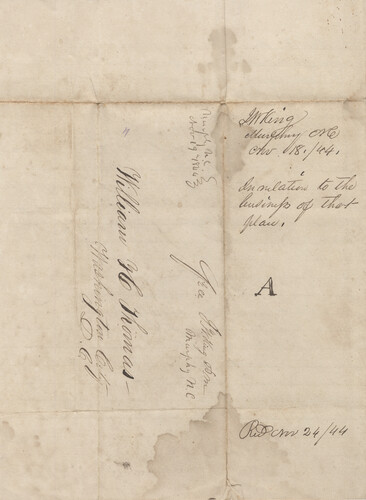 J W King
Murphy NC
Nov 18,/44.
In relation to the
business of that
place.
A
Recd Nov 24/44
William H Thomas
Washington City
D. C.
Murphy NC
Murphy N C